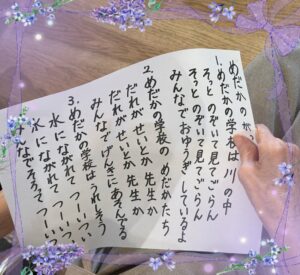 めだかの が
1. めだかの学校は 川の中
そっと のぞいて見てごらん
そっと のぞいて見てごらん
みんなで おゆうぎ しているよ
2. めだかの学校の めだかたち
だれが せいとか 先生か
だれが せいとか 先生か
みんなで げんきに あそんでる
3. めだかの学校は うれしそう
水にながれて つーいつい
水にながれて つーいつい
みんなで そろって つーいつい